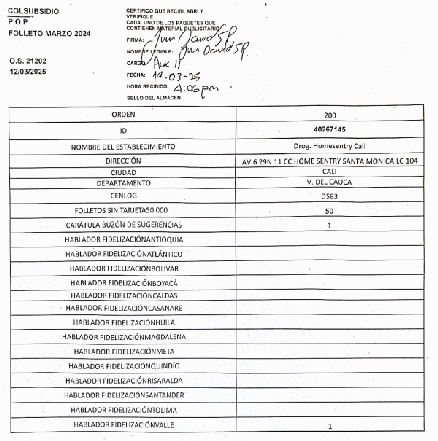 COLSUBSIDIO
P O P
FOLLETO MARZO 2024
O.S. 21202
12/03/2025
CERTIFICO QUE RECIBI ABRI Y
VERIFIQUE
CADA UNO DE LOS PAQUETES QUE
CONTIENEN MATERIAL PUBLICITARIO
FIRMA: Juan David S.P.
NOMBRE LEGIBLE: Juan David S.P.
CARGO: Aux
FECHA: 14-03-25
HORA RECIBIDO 4:06 pm
SELLO DEL ALMACEN
ORDEN 200
ID 40267145
NOMBRE DEL ESTABLECIMIENTO Drog. Homesentry Cali
DIRECCIÓN AV 6 29N 11 CC HOME SENTRY SANTA MONICA LC 104
CIUDAD CALI
DEPARTAMENTO V. DEL CAUCA
CENLOG D583
FOLLETOS SIN TARJETA 50.000 50
CARÁTULA BUZÓN DE SUGERENCIAS 1
HABLADOR FIDELIZACIÓNANTIOQUIA
HABLADOR FIDELIZACIÓNATLÁNTICO
HABLADOR FIDELIZACIÓNBOLIVAR
HABLADOR FIDELIZACIÓNBOYACÁ
HABLADOR FIDELIZACIÓNCALDAS
HABLADOR FIDELIZACIÓNCASANARE
HABLADOR FIDELIZACIÓNHUILA
HABLADOR FIDELIZACIÓNMAGDALENA
HABLADOR FIDELIZACIÓNMETA
HABLADOR FIDELIZACIÓNQUINDÍO
HABLADOR FIDELIZACIÓNRISARALDA
HABLADOR FIDELIZACIÓNSANTANDER
HABLADOR FIDELIZACIÓNTOLIMA
HABLADOR FIDELIZACIÓNVALLE 1